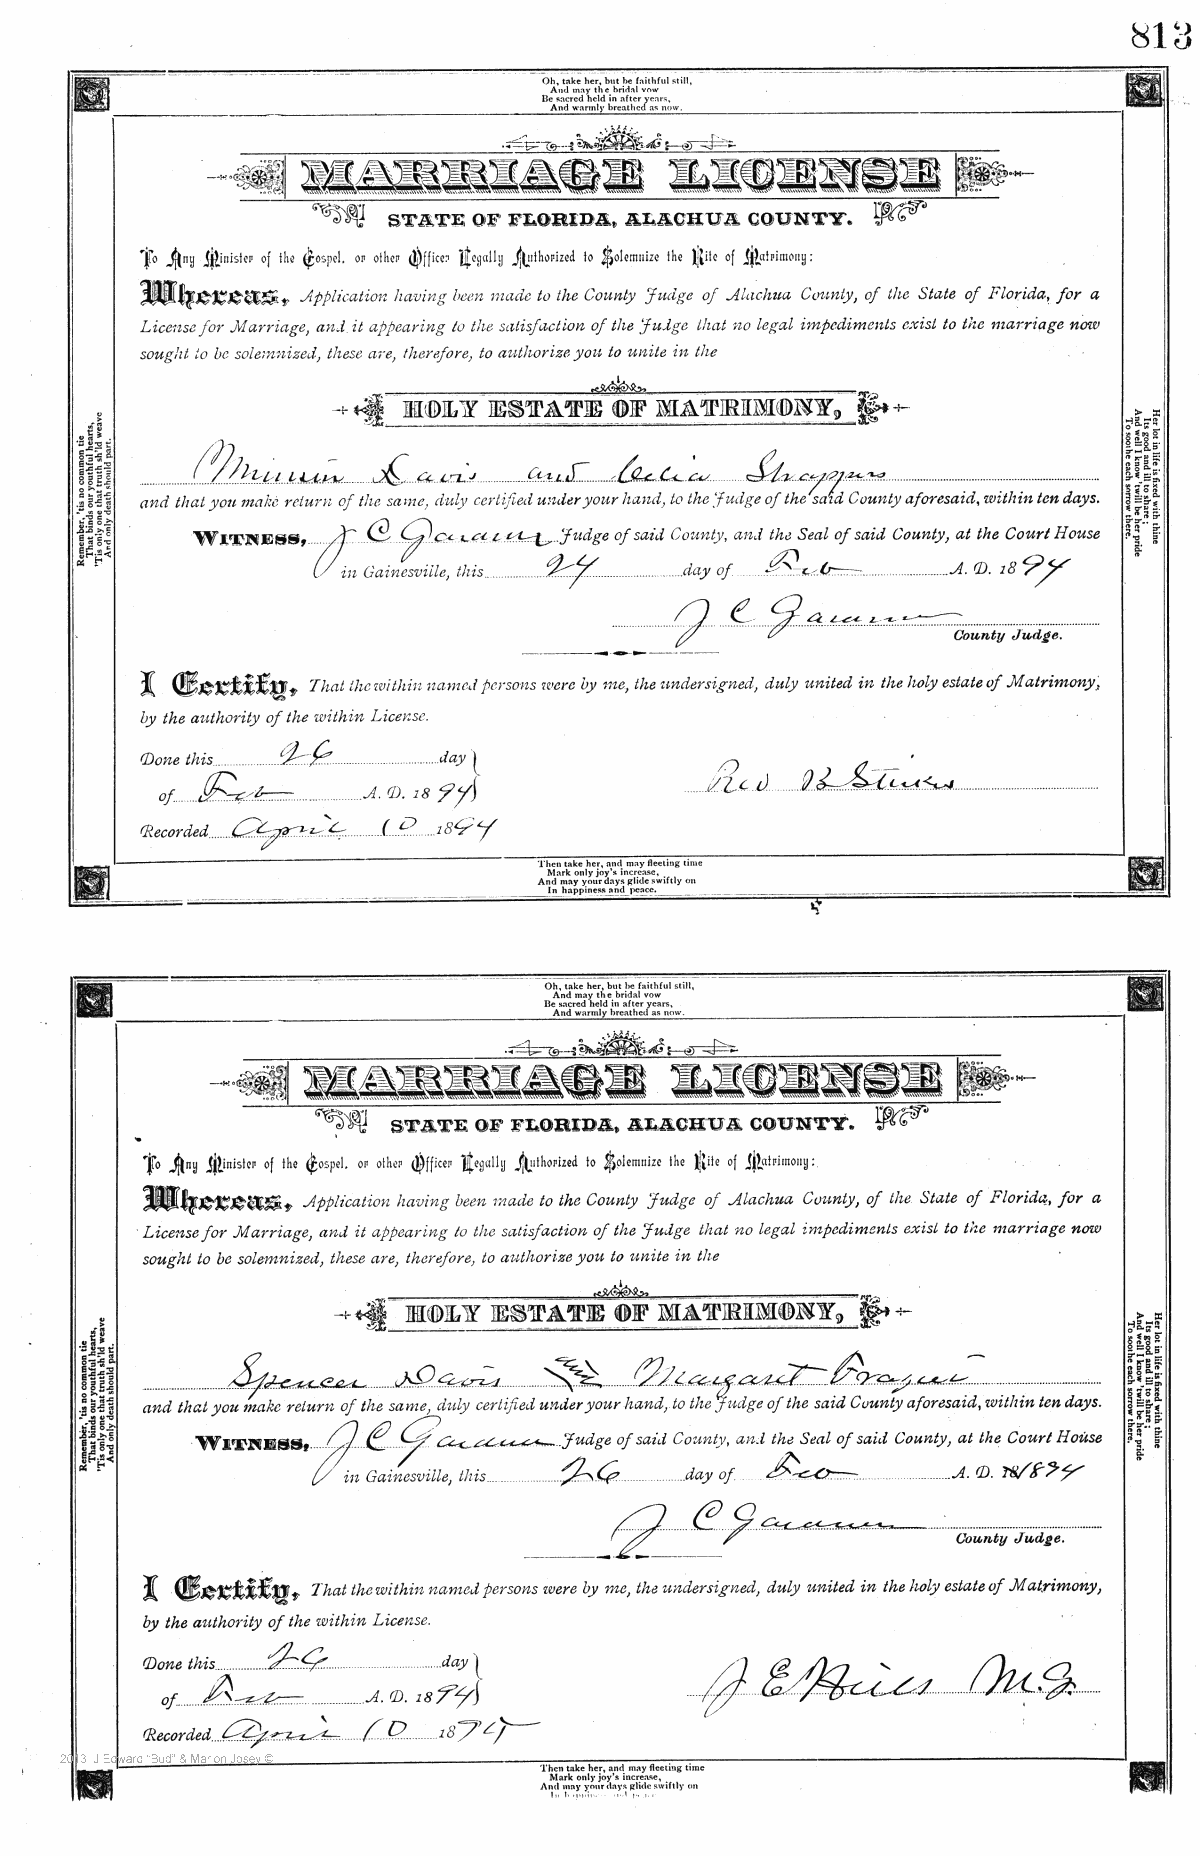 813
Oh, take her, but be faithful still,
And may the bridal vow
Be sacred held in after years,
And warmly breathed as now.
MARRIAGE LICENSE
STATE OF FLORIDA, ALACHUA COUNTY.
To Any Minister of the Gospel, or other Officer Legally Authorized to Solemnize the Rite of Matrimony:
Whereas, Application having been made to the County Judge of Alachua County, of the State of Florida, for a
License for Marriage, and it appearing to the satisfaction of the Judge that no legal impediments exist to the marriage now
sought to be solemnized, these are, therefore, to authorize you to unite in the
HOLY ESTATE OF MATRIMONY,
Davis and Celia
and that you make return of the same, duly certified under your hand, to the Judge of the said County aforesaid, within ten days.
WITNESS, J C Gardner Judge of said County, and the Seal of said County, at the Court House
in Gainesville, this 24 day of Feb A. D. 1894
J C Gardner
County Judge.
I Certify, That the within named persons were by me, the undersigned, duly united in the holy estate of Matrimony,
by the authority of the within License.
Done this 26 day
of Feb A. D. 1894
Rev B
Recorded April 10 1894
Remember, 'tis no common tie
That binds our youthful hearts,
'Tis only one that truth sh'ld weave
And only death should part.
Her lot in life is fixed with thine
Its good and ill to share;
And well I know 'twill be her pride
To soothe each sorrow there.
Then take her, and may fleeting time
Mark only joy's increase,
And may your days glide swiftly on
In happiness and peace.
Oh, take her, but be faithful still,
And may the bridal vow
Be sacred held in after years,
And warmly breathed as now.
MARRIAGE LICENSE
STATE OF FLORIDA, ALACHUA COUNTY.
To Any Minister of the Gospel, or other Officer Legally Authorized to Solemnize the Rite of Matrimony:
Whereas, Application having been made to the County Judge of Alachua County, of the State of Florida, for a
License for Marriage, and it appearing to the satisfaction of the Judge that no legal impediments exist to the marriage now
sought to be solemnized, these are, therefore, to authorize you to unite in the
HOLY ESTATE OF MATRIMONY,
Spencer Davis and Margaret Frazier
and that you make return of the same, duly certified under your hand, to the Judge of the said County aforesaid, within ten days.
WITNESS, J C Gardner Judge of said County, and the Seal of said County, at the Court House
in Gainesville, this 26 day of Feb A. D. 18 1894
J C Gardner
County Judge.
I Certify, That the within named persons were by me, the undersigned, duly united in the holy estate of Matrimony,
by the authority of the within License.
Done this 26 day
of Feb A. D. 1894
J E Hills M.G.
Recorded April 10 1894
Remember, 'tis no common tie
That binds our youthful hearts,
'Tis only one that truth sh'ld weave
And only death should part.
Her lot in life is fixed with thine
Its good and ill to share;
And well I know 'twill be her pride
To soothe each sorrow there.
2013 J Edward "Bud" & Marion Josey ©
Then take her, and may fleeting time
Mark only joy's increase,
And may your days glide swiftly on
In happiness and peace.